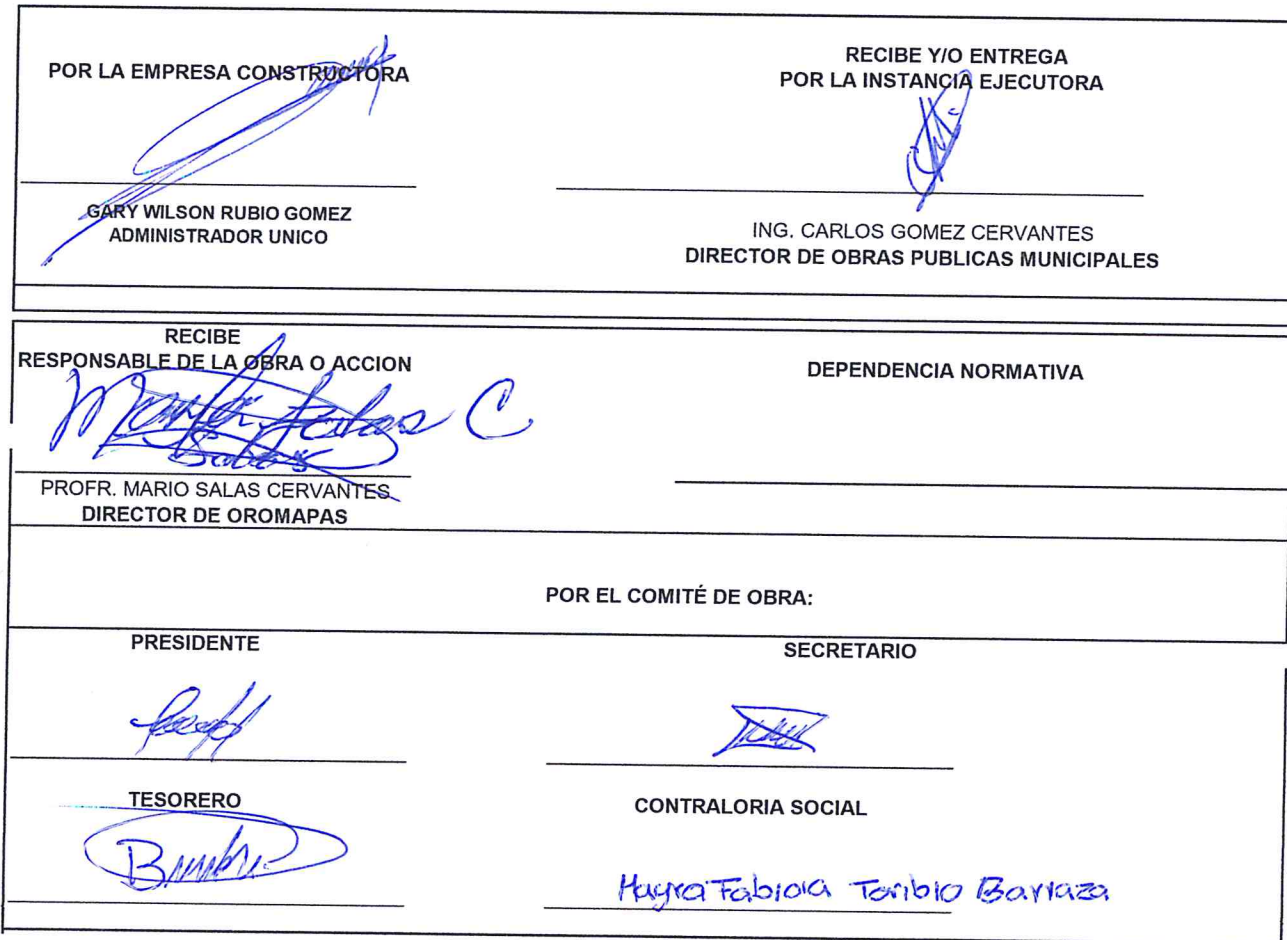 POR LA EMPRESA CONSTRUCTORA
GARY WILSON RUBIO GOMEZ
ADMINISTRADOR UNICO
RECIBE Y/O ENTREGA
POR LA INSTANCIA EJECUTORA
ING. CARLOS GOMEZ CERVANTES
DIRECTOR DE OBRAS PUBLICAS MUNICIPALES
RECIBE
RESPONSABLE DE LA OBRA O ACCION
PROFR. MARIO SALAS CERVANTES
DIRECTOR DE OROMAPAS
DEPENDENCIA NORMATIVA
POR EL COMITÉ DE OBRA:
PRESIDENTE
SECRETARIO
TESORERO
CONTRALORIA SOCIAL
Mayra Fabiola Toribio Barraza